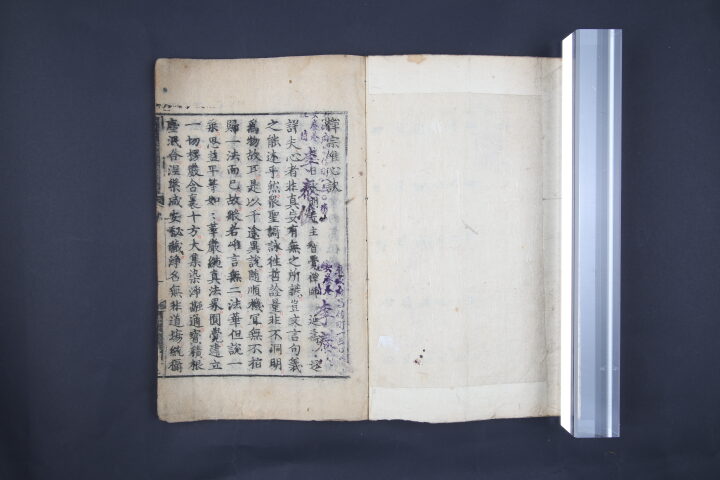 禪宗唯心訣
主智覺禪師 延壽 述
詳夫心者非真妄有無之所辨豈文言句義
之能述乎然衆聖謌詠往哲詮量非不洞明
為物故耳是以千途異說隨順機冝無不指
歸一法而已故般若唯言無二法華但說一
乘思益平等如〻華嚴純真法界圓覺建立
一切楞嚴含裹十方大集染淨融通寶積根
塵泯合涅槃咸安秘藏淨名無非道場統攝